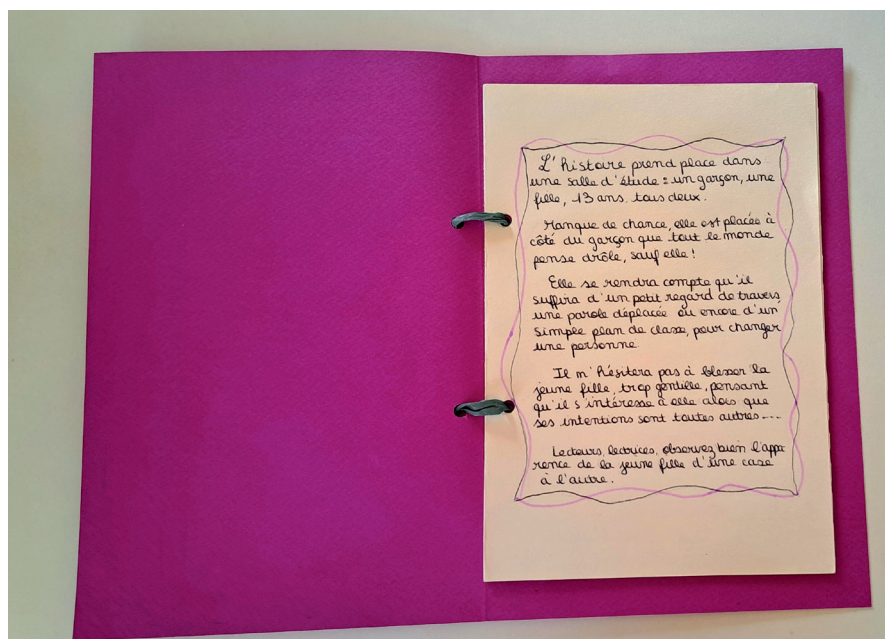 L'histoire prend place dans
une salle d'étude : un garçon, une
fille, 13 ans tous deux.
Manque de chance, elle est placée à
côté du garçon que tout le monde
pense drôle, sauf elle !
Elle se rendra compte qu'il
suffira d'un petit regard de travers,
une parole déplacée ou encore d'un
simple plan de classe, pour changer
une personne.
Il n'hésitera pas à blesser la
jeune fille, trop gentille, pensant
qu'il s'intéresse à elle alors que
ses intentions sont toutes autres....
Lecteurs, lectrices, observez bien l'appa
rence de la jeune fille d'une case
à l'autre.